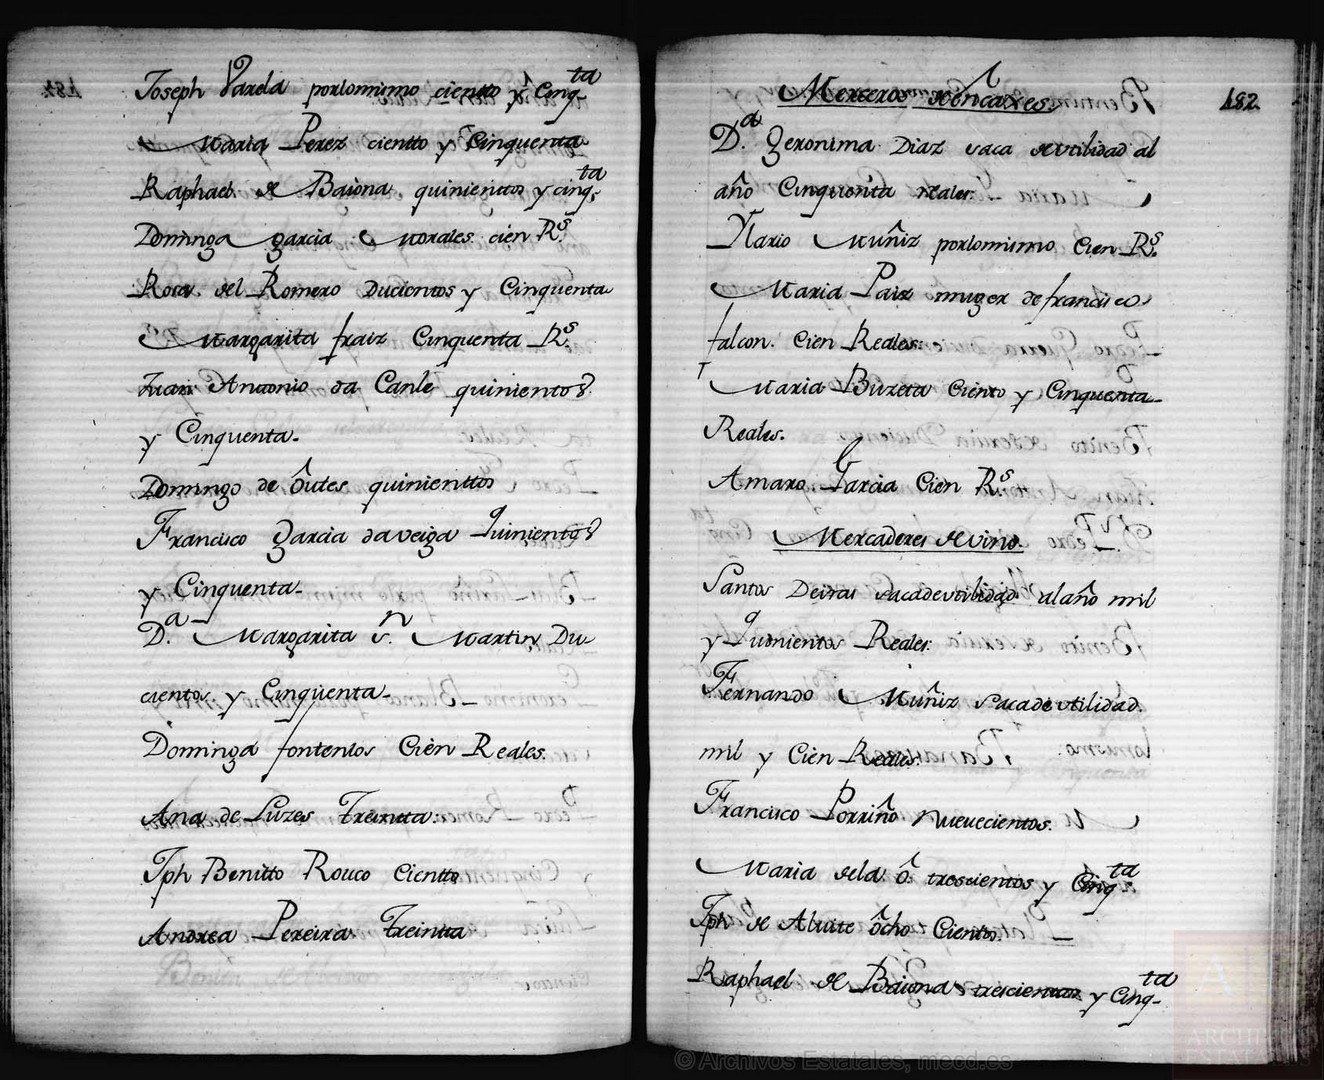 Joseph Varela porlomismo ciento y Cinq.ta
Maria Perez ciento y Cinquenta
Raphael de Baiona quinientos y cinq.ta
Dominga Garcia Morales cien R.s
Rosa del Romero Ducientos y Cinquenta
Margarita fraiz Cinquenta R.s
Juan Antonio da Canle quinientos
y Cinquenta
Domingo de Outes quinienttos
Francisco Garcia daveiga quinientos
y Cinquenta
D.a Margarita S.n Martin Du
cientos y Cinquenta
Dominga fontenlos Cien Reales.
Ana de Luzes Treintta:
Jph Benitto Rouco Cientto
Andrea Pereira Treintta
182
Merceros de encaxes
D.a Geronima Diaz saca de utilidad al
año Cinquenta reales.
Ylario Muñiz porlomismo Cien R.s
Maria Paiz muger de francisco
falcon. Cien Reales.
Maria Buzeta Ciento y Cinquenta
Reales.
Amaro Garcia Cien R.s
Mercaderes de vino.
Santos Deiras saca de utilidad al año mil
y Quinientos Reales.
Fernando Muñiz saca de utilidad
mil y Cien Reales.
Francisco Porriño Nuevecientos.
Maria dela O trescientos y Cinq.ta
Jph de Aluite ôcho Cientos.
Raphael de Baiona trescientos y Cinq.ta
© Archivos Estatales, mecd.es